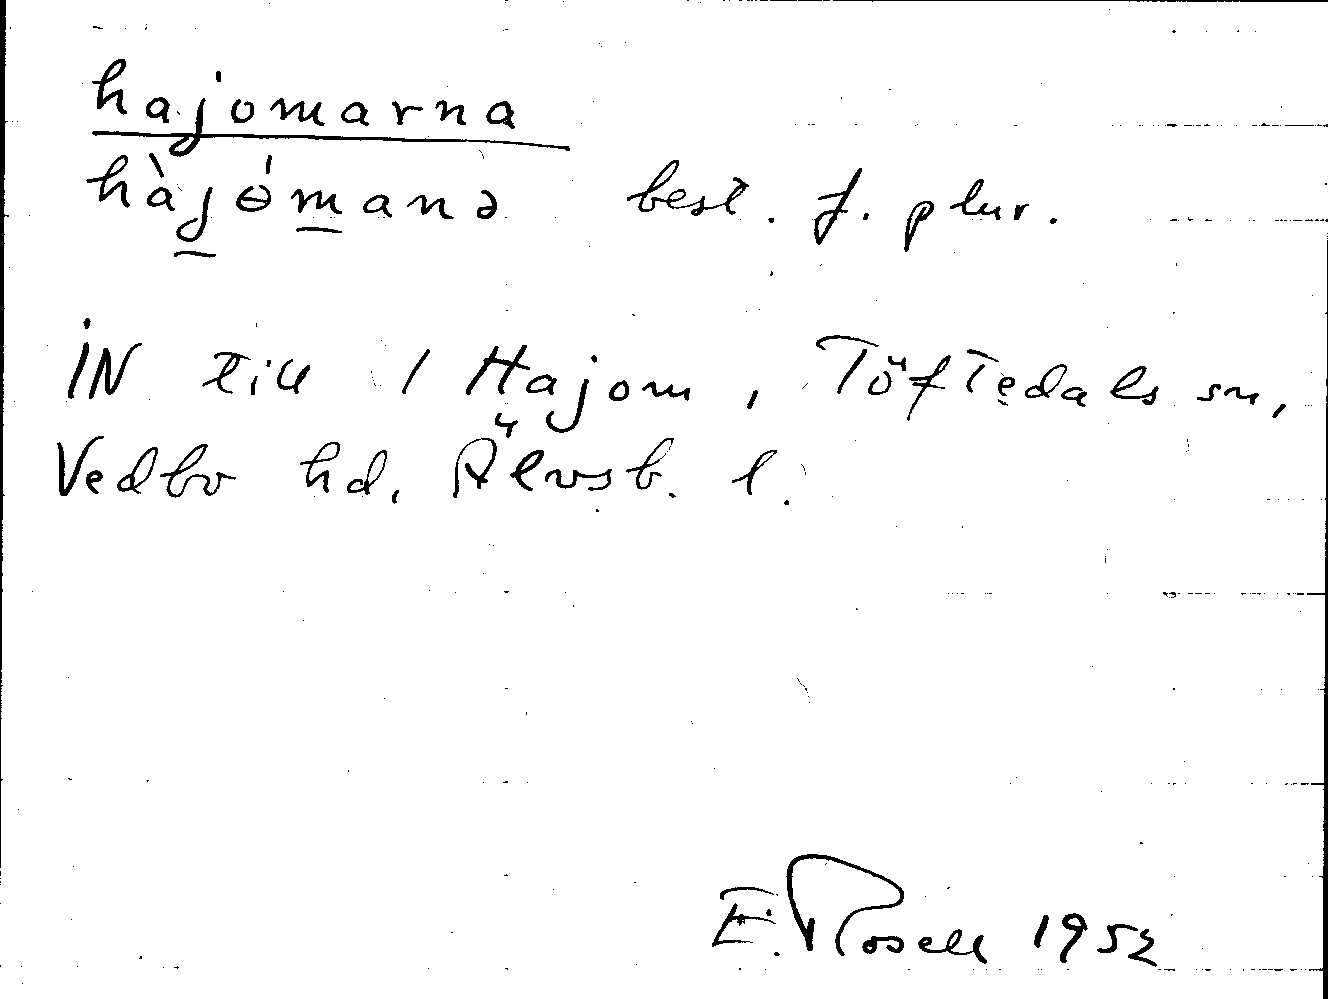 hajomarna
hàjómanə best. f. plur.
IN till 1 Hajom, Töftedals sn,
Vedbo hd. Älvsb. l.
E. Rosell 1952